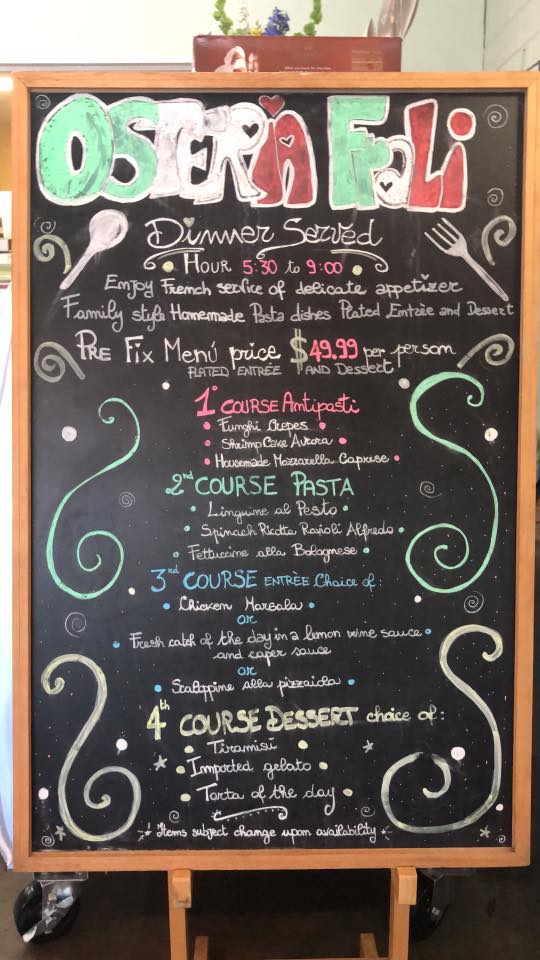 OSTERIA FraLi
Dinner Served
Hour 5:30 to 9:00
Enjoy French service of delicate appetizer
Family style Homemade Pasta dishes Plated Entrèe and Dessert
Pre Fix Menú price $49.99 per person
PLATED ENTRÈE AND Dessert
1° COURSE Antipasti
Funghi Crepes
Shrimp Cake Aurora
Housemade Mozzarella Caprese
2nd COURSE PASTA
Linguine al Pesto
Spinach Ricotta Ravioli Alfredo
Fettuccine alla Bolognese
3rd COURSE ENTRÈE Choice of:
Chicken Marsala
or
Fresh catch of the day in a lemon wine sauce
and caper sauce
or
Scaloppine alla pizzaiola
4th COURSE DESSERT choice of:
Tiramisú
Imported gelato
Torta of the day
Items subject change upon availability